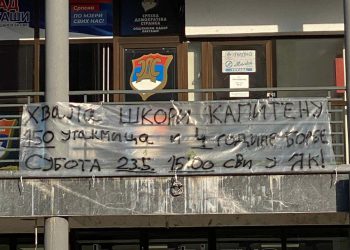 Српски
ПО МЈЕРИ
СВИХ НАС!
СРПСКА
ДЕМОКРАТСКА
СТРАНКА
ХВАЛА ШКОРИ КАПИТЕНУ
150 УТАКМИЦА И 4 ГОДИНЕ БОРБЕ
СУБОТА 23.5. 15:00 СВИ У ЈАК!